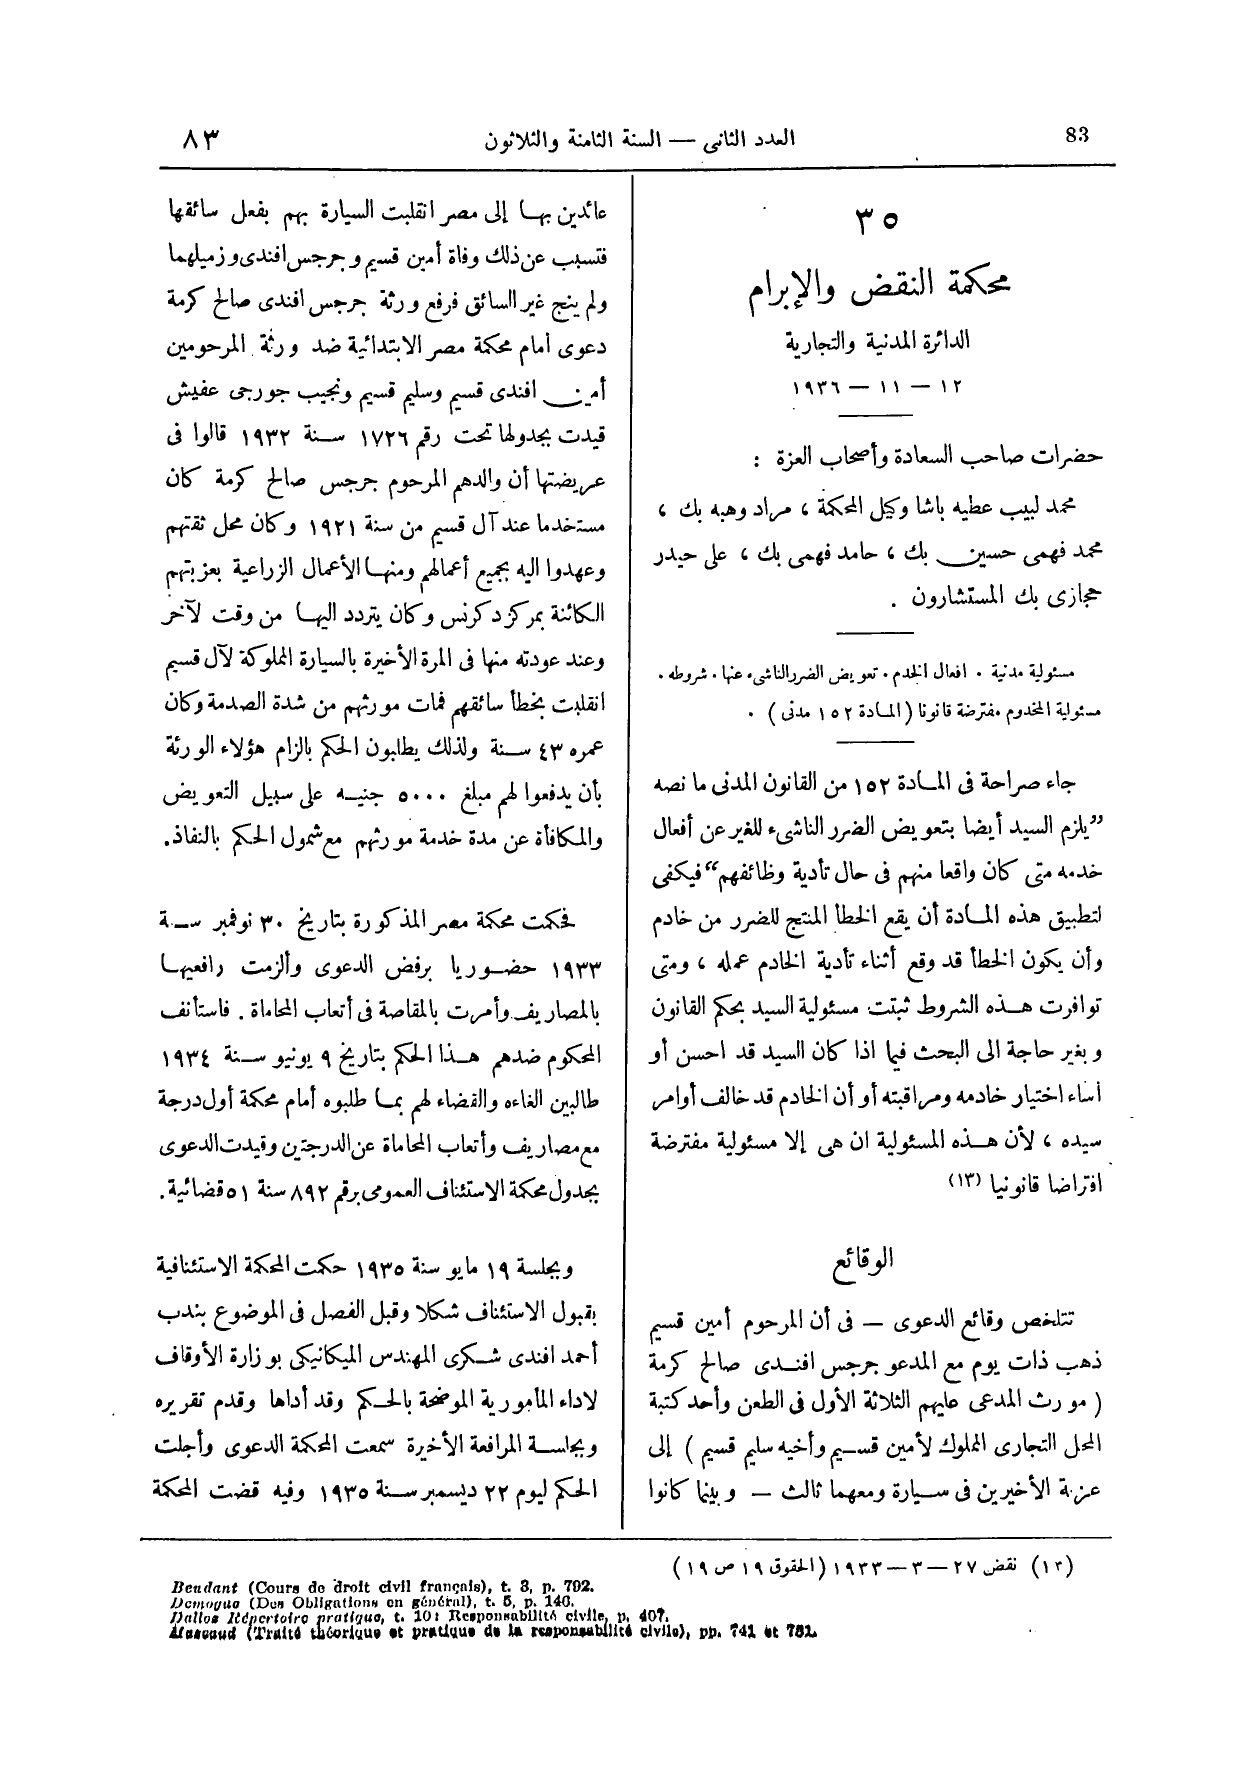 83
العدد الثانى — السنة الثامنة والثلاثون
٨٣
٣٥
محكمة النقض والإبرام
الدائرة المدنية والتجارية
١٢ — ١١ — ١٩٣٦
حضرات صاحب السعادة وأصحاب العزة :
محمد لبيب عطيه باشا وكيل المحكمة ، مراد وهبه بك ،
محمد فهمى حسين بك ، حامد فهمى بك ، على حيدر
حجازى بك المستشارون .
مسئولية مدنية . افعال الخدم . تعويض الضرر الناشىء عنها . شروطه .
مسئولية المخدوم مفترضة قانونا ( المادة ١٥٢ مدنى ) .
جاء صراحة فى المادة ١٥٢ من القانون المدنى ما نصه
”يلزم السيد أيضا بتعويض الضرر الناشىء للغير عن أفعال
خدمه متى كان واقعا منهم فى حال تأدية وظائفهم“ فيكفى
لتطبيق هذه المادة أن يقع الخطأ المنتج للضرر من خادم
وأن يكون الخطأ قد وقع أثناء تأدية الخادم عمله ، ومتى
توافرت هذه الشروط ثبتت مسئولية السيد بحكم القانون
وبغير حاجة الى البحث فيما اذا كان السيد قد احسن أو
أساء اختيار خادمه ومراقبته أو أن الخادم قد خالف أوامر
سيده ، لأن هذه المسئولية ان هى إلا مسئولية مفترضة
افتراضا قانونيا (١٣)
الوقائع
تتلخص وقائع الدعوى — فى أن المرحوم أمين قسيم
ذهب ذات يوم مع المدعو جرجس افندى صالح كرمة
( مورث المدعى عليهم الثلاثة الأول فى الطعن وأحد كتبة
المحل التجارى المملوك لأمين قسيم وأخيه سليم قسيم ) إلى
عزبة الأخيرين فى سيارة ومعهما ثالث — وبينما كانوا
عائدين بها إلى مصر انقلبت السيارة بهم بفعل سائقها
فتسبب عن ذلك وفاة أمين قسيم وجرجس افندى وزميلهما
ولم ينج غير السائق فرفع ورثة جرجس افندى صالح كرمة
دعوى أمام محكمة مصر الابتدائية ضد ورثة المرحومين
أمين افندى قسيم وسليم قسيم ونجيب جورجى عفيش
قيدت بجدولها تحت رقم ١٧٢٦ سنة ١٩٣٢ قالوا فى
عريضتها أن والدهم المرحوم جرجس صالح كرمة كان
مستخدما عند آل قسيم من سنة ١٩٢١ وكان محل ثقتهم
وعهدوا اليه بجميع أعمالهم ومنها الأعمال الزراعية بعزبتهم
الكائنة بمركز دكرنس وكان يتردد اليها من وقت لآخر
وعند عودته منها فى المرة الأخيرة بالسيارة المملوكة لآل قسيم
انقلبت بخطأ سائقهم فمات مورثهم من شدة الصدمة وكان
عمره ٤٣ سنة ولذلك يطالبون الحكم بالزام هؤلاء الورثة
بأن يدفعوا لهم مبلغ ٥٠٠٠ جنيه على سبيل التعويض
والمكافأة عن مدة خدمة مورثهم مع شمول الحكم بالنفاذ.
فحكمت محكمة مصر المذكورة بتاريخ ٣٠ نوفمبر سنة
١٩٣٣ حضوريا برفض الدعوى وألزمت رافعيها
بالمصاريف وأمرت بالمقاصة فى أتعاب المحاماة . فاستأنف
المحكوم ضدهم هذا الحكم بتاريخ ٩ يونيو سنة ١٩٣٤
طالبين الغاءه والقضاء لهم بما طلبوه أمام محكمة أول درجة
مع مصاريف وأتعاب المحاماة عن الدرجتين وقيدت الدعوى
بجدول محكمة الاستئناف العمومى برقم ٨٩٢ سنة ٥١ قضائية.
وبجلسة ١٩ مايو سنة ١٩٣٥ حكمت المحكمة الاستئنافية
بقبول الاستئناف شكلا وقبل الفصل فى الموضوع بندب
أحمد افندى شكرى المهندس الميكانيكى بوزارة الأوقاف
لاداء المأمورية الموضحة بالحكم وقد أداها وقدم تقريره
وبجلسة المرافعة الأخيرة سمعت المحكمة الدعوى وأجلت
الحكم ليوم ٢٢ ديسمبر سنة ١٩٣٥ وفيه قضت المحكمة
(١٣) نقض ٢٧ — ٣ — ١٩٣٣ (الحقوق ١٩ ص ١٩)
Beudant (Cours de droit civil français), t. 3, p. 702.
Demogue (Des Obligations en général), t. 5, p. 140.
Dalloz Répertoire pratique, t. 10: Responsabilité civile, p. 407.
Mazeaud (Traité théorique et pratique de la responsabilité civile), pp. 741 et 781.